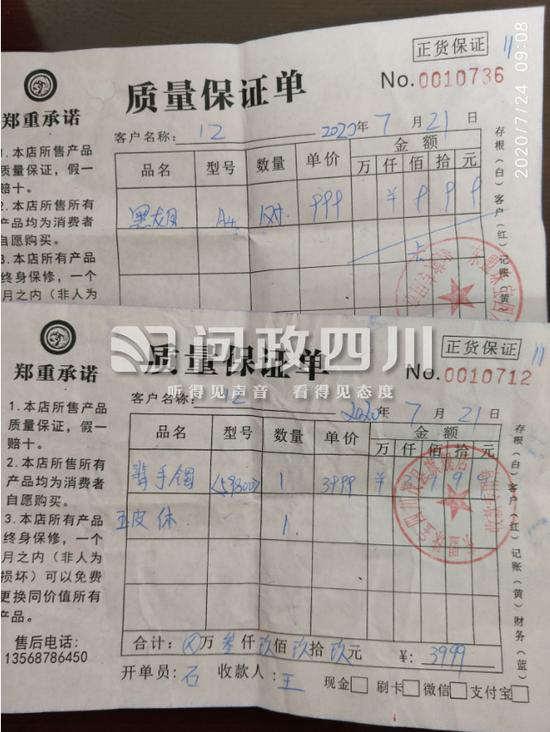 正货保证 11
质量保证单
No.0010736
郑重承诺
客户名称: 12 2020年7月21日
1.本店所售产品
质量保证,假一
赔十。
2.本店所售所有
产品均为消费者
自愿购买。
3.本店所有产品
终身保修,一个
月之内(非人为
品名 型号 数量 单价 金额
万 仟 佰 拾 元
A4 999 ¥ 9 9 9
存根(白)客户(红)记账(黄)
2020/7/24 09:08
问政四川
听得见声音 看得见态度
正货保证 11
质量保证单
No.0010712
郑重承诺
客户名称: 12 2020年7月21日
1.本店所售产品
质量保证,假一
赔十。
2.本店所售所有
产品均为消费者
自愿购买。
3.本店所有产品
终身保修,一个
月之内(非人为
损坏)可以免费
更换同价值所有
产品。
售后电话:
13568786450
品名 型号 数量 单价 金额
万 仟 佰 拾 元
翡手镯 <59800> 1 3999 ¥ 3 9 9 9
1.
合计:⊗万叁仟玖佰玖拾玖元 ¥:3999
开单员:石 收款人:王 现金 刷卡 微信 支付宝
存根(白)客户(红)记账(黄)财务(蓝)